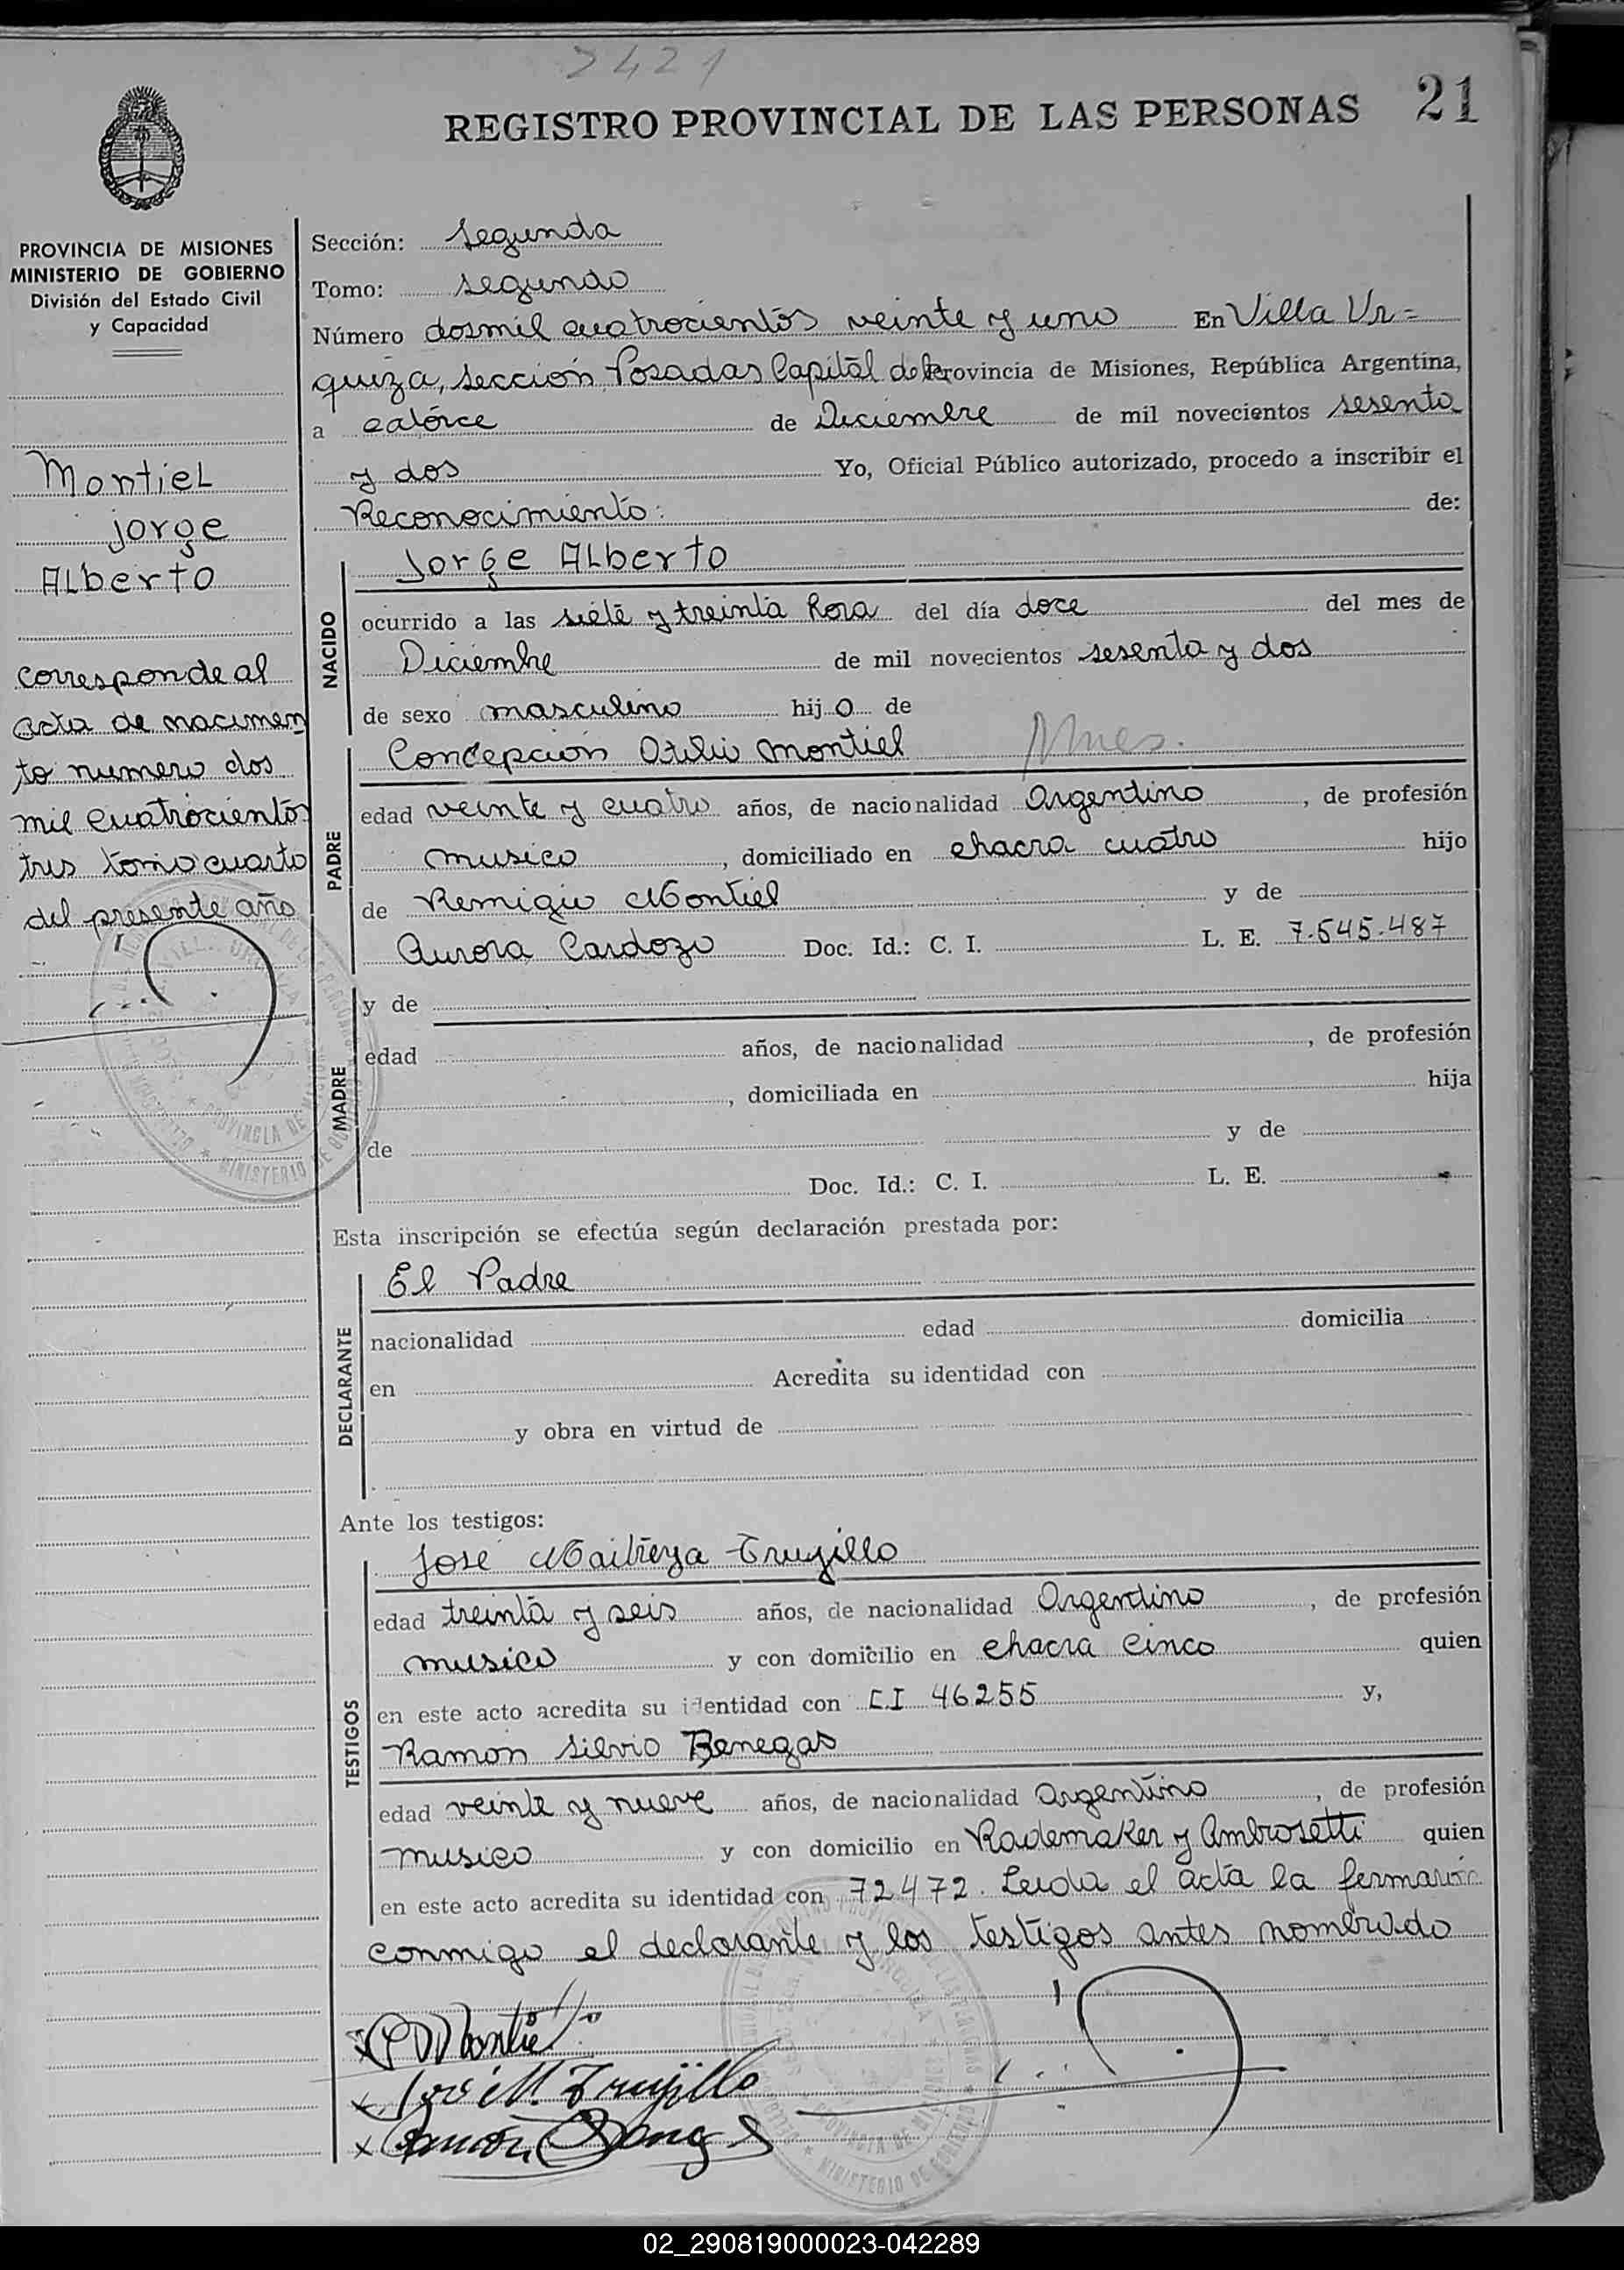 2421
REGISTRO PROVINCIAL DE LAS PERSONAS 21
PROVINCIA DE MISIONES
MINISTERIO DE GOBIERNO
División del Estado Civil
y Capacidad
Montiel
Jorge
Alberto
corresponde al
acta de nacimien
to numero dos
mil cuatrocientos
tres tomo cuarto
del presente año
Sección: segunda
Tomo: segundo
Número dosmil cuatrocientos veinte y uno En Villa Ur=
quiza, sección Posadas Capital de la Provincia de Misiones, República Argentina,
a catorce de Diciembre de mil novecientos sesenta
y dos Yo, Oficial Público autorizado, procedo a inscribir el
Reconocimiento: de:
NACIDO
Jorge Alberto
ocurrido a las siete y treinta hora del día doce del mes de
Diciembre de mil novecientos sesenta y dos
de sexo masculino hijo de
PADRE
Concepción Montiel
edad veinte y cuatro años, de nacionalidad Argentino, de profesión
musico, domiciliado en chacra cuatro hijo
de Remigio Montiel y de
Aurora Cardozo Doc. Id.: C. I. L. E. 7.545.487
MADRE
y de
edad años, de nacionalidad , de profesión
, domiciliada en hija
de y de
Doc. Id.: C. I. L. E.
Esta inscripción se efectúa según declaración prestada por:
DECLARANTE
El Padre
nacionalidad edad domicilia
en Acredita su identidad con
y obra en virtud de
Ante los testigos:
TESTIGOS
José Trujillo
edad treinta y seis años, de nacionalidad Argentino, de profesión
musico y con domicilio en chacra cinco quien
en este acto acredita su identidad con C.I 46255 y,
Ramon Silvio Benegas
edad veinte y nueve años, de nacionalidad Argentino, de profesión
musico y con domicilio en Rademaker y Ambrosetti quien
en este acto acredita su identidad con 72472. Leida el acta la
conmigo el declarante y los testigos antes nombrado
C Montiel
José M. Trujillo
Ramón
02_290819000023-042289